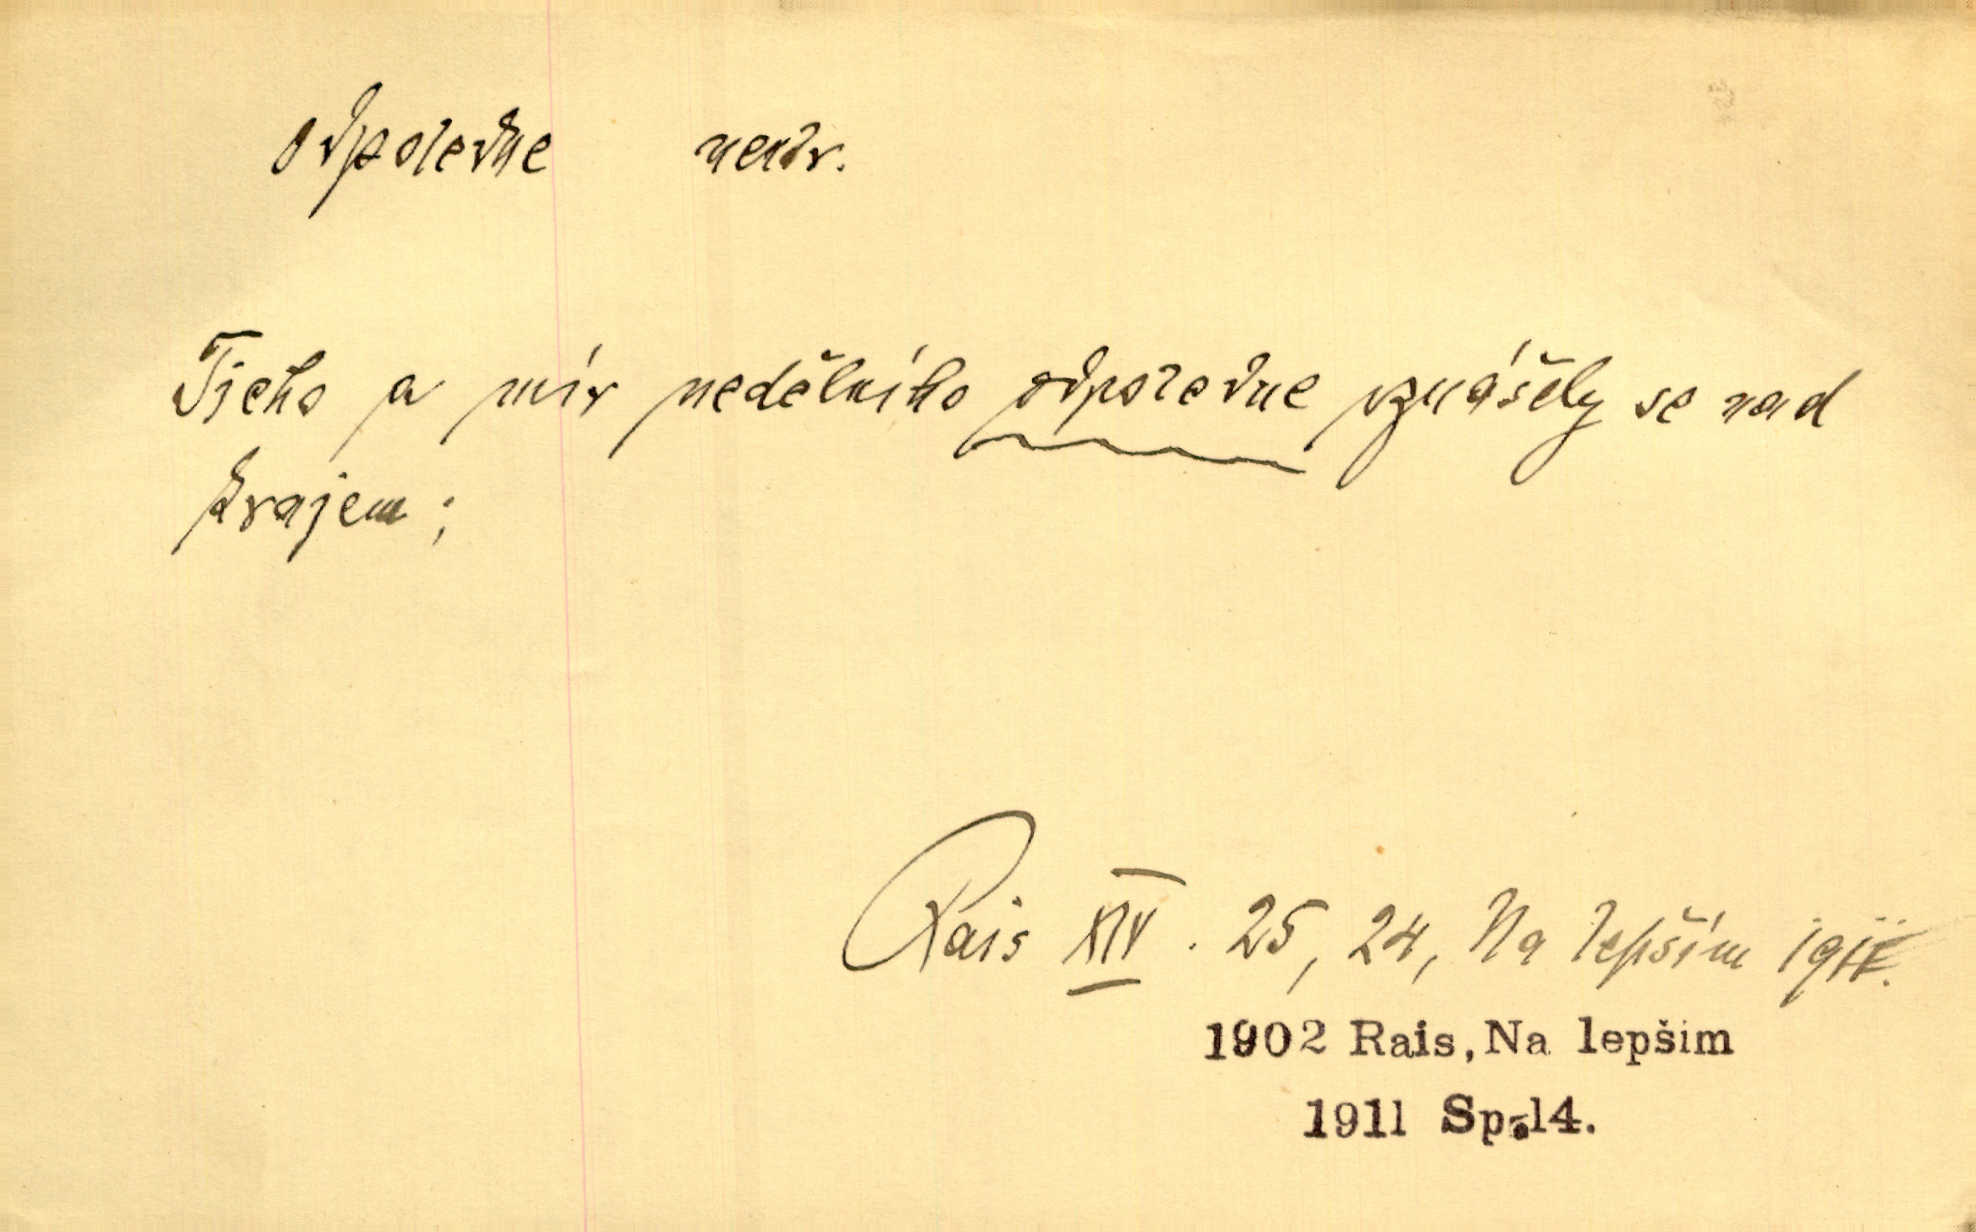 odpoledne neutr.
Ticho a mír nedělního odpoledne vznášely se nad
krajem;
Rais XIV. 25, 24, Na lepším
1902 Rais, Na lepším
1911 Sp. 14.